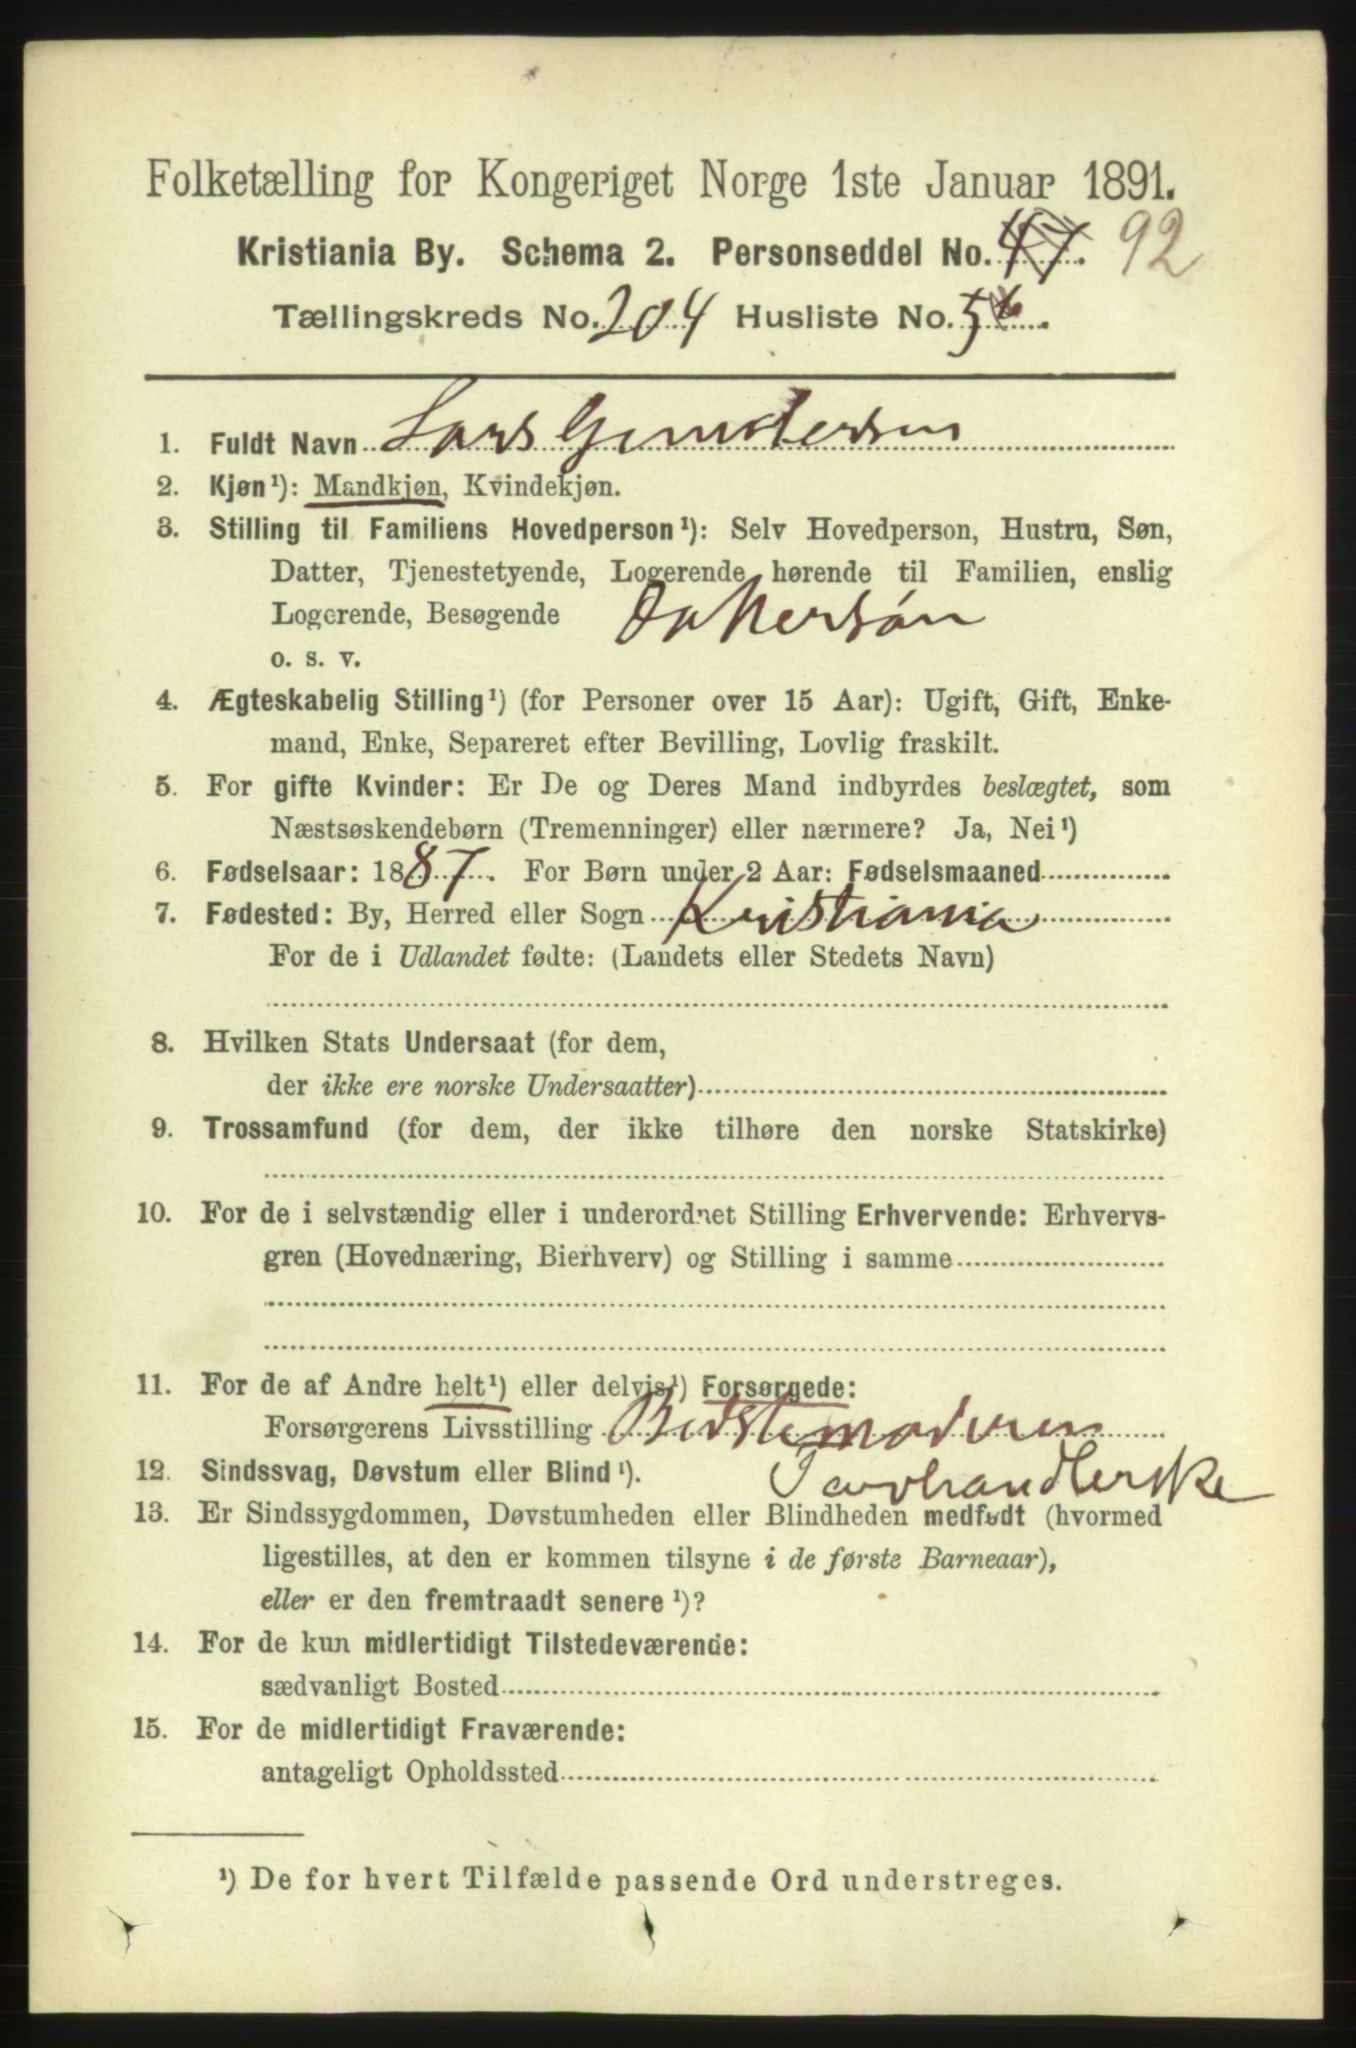 Folketælling for Kongeriget Norge 1ste Januar 1891.
Kristiania By. Schema 2. Personseddel No. 47. 92
Tællingskreds No. 204 Husliste No. 5
1. Fuldt Navn Lars Gundersen
2. Kjøn¹): Mandkjøn, Kvindekjøn.
3. Stilling til Familiens Hovedperson¹): Selv Hovedperson, Hustru, Søn,
Datter, Tjenestetyende, Logerende hørende til Familien, enslig
Logerende, Besøgende Dattersøn
o. s. v.
4. Ægteskabelig Stilling¹) (for Personer over 15 Aar): Ugift, Gift, Enke-
mand, Enke, Separeret efter Bevilling, Lovlig fraskilt.
5. For gifte Kvinder: Er De og Deres Mand indbyrdes beslægtet, som
Næstsøskendebørn (Tremenninger) eller nærmere? Ja, Nei¹)
6. Fødselsaar: 1887. For Børn under 2 Aar: Fødselsmaaned
7. Fødested: By, Herred eller Sogn Kristiania
For de i Udlandet fødte: (Landets eller Stedets Navn)
8. Hvilken Stats Undersaat (for dem,
der ikke ere norske Undersaatter)
9. Trossamfund (for dem, der ikke tilhøre den norske Statskirke)
10. For de i selvstændig eller i underordnet Stilling Erhvervende: Erhvervs-
gren (Hovednæring, Bierhverv) og Stilling i samme
11. For de af Andre helt¹) eller delvis¹) Forsørgede:
Forsørgerens Livsstilling Bedstemoderen
12. Sindssvag, Døvstum eller Blind¹). Torvhandlerske
13. Er Sindssygdommen, Døvstumheden eller Blindheden medfødt (hvormed
ligestilles, at den er kommen tilsyne i de første Barneaar),
eller er den fremtraadt senere¹)?
14. For de kun midlertidigt Tilstedeværende:
sædvanligt Bosted
15. For de midlertidigt Fraværende:
antageligt Opholdssted
¹) De for hvert Tilfælde passende Ord understreges.